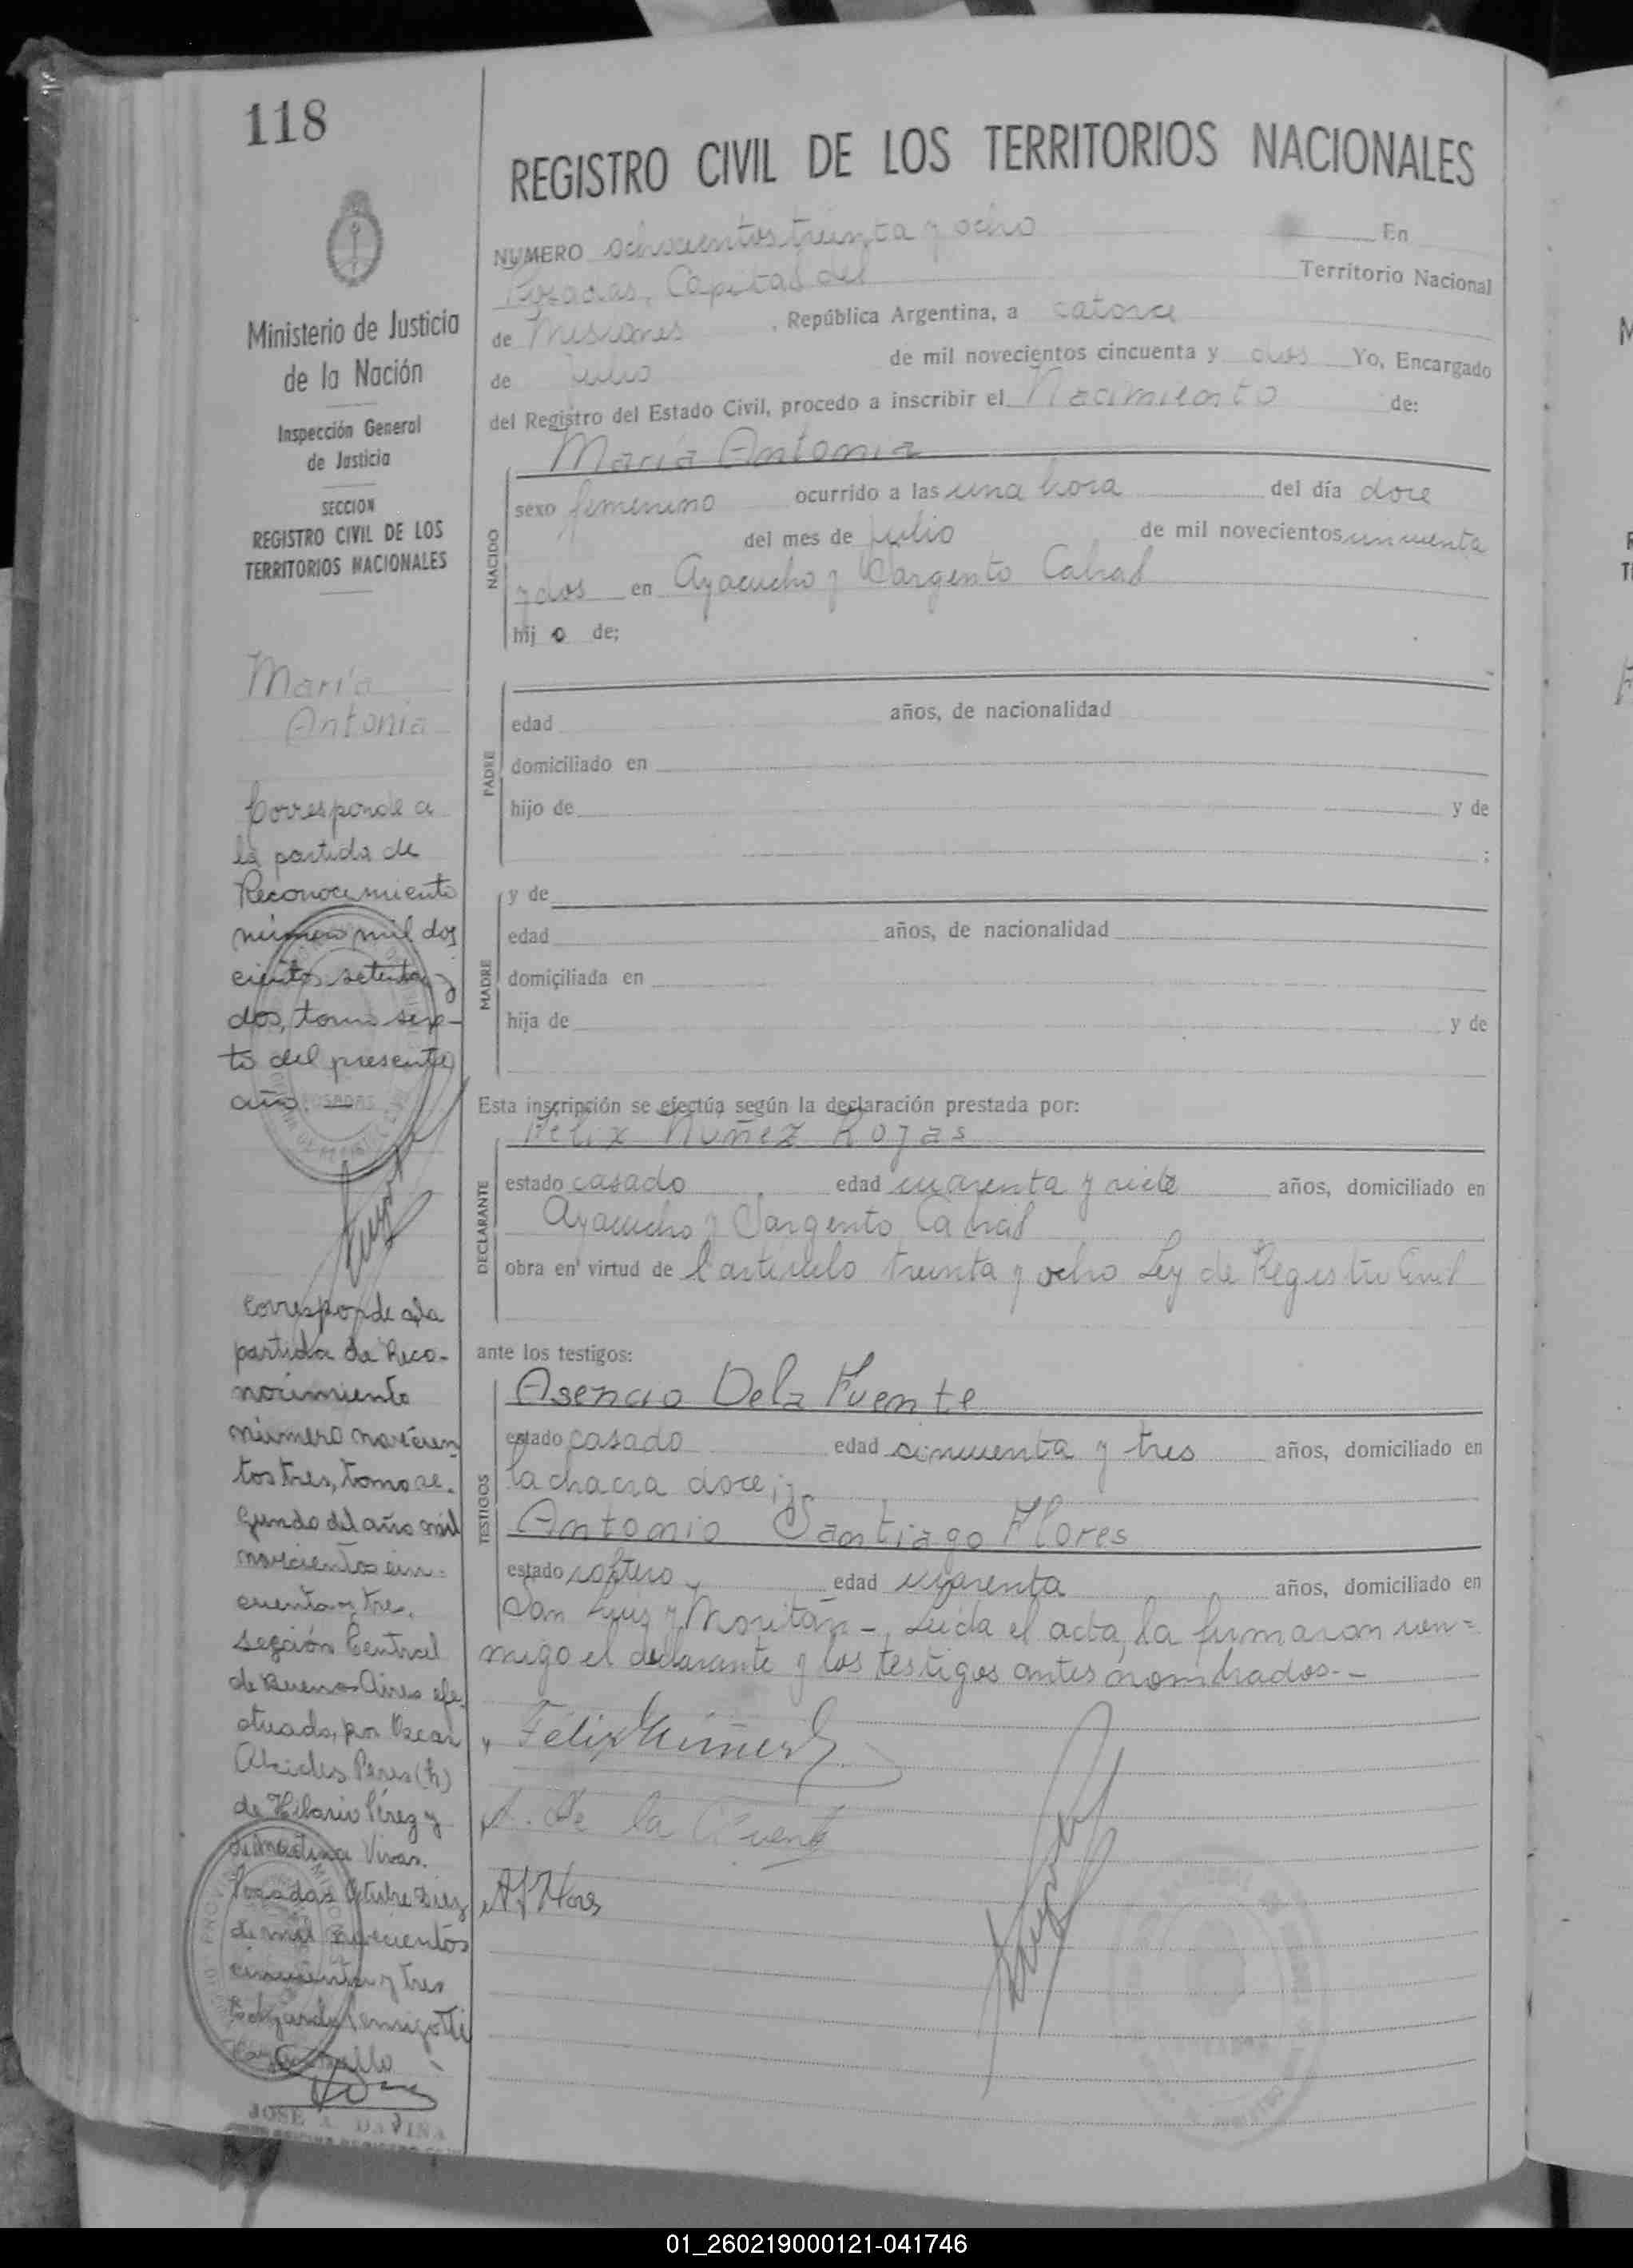 118
Ministerio de Justicia
de la Nación
Inspección General
de Justicia
SECCION
REGISTRO CIVIL DE LOS
TERRITORIOS NACIONALES
María
Antonia
Corresponde a
la partida de
Reconocimiento
número mil dos
cientos setenta y
dos, tomo sex-
to del presente
año.
POSADAS
Corresponde a la
partida de Reco-
nocimiento
número novecien
tos tres, tomo se-
gundo del año mil
novecientos cin-
cuenta y tres.
Sección Central
de Buenos Aires efe
ctuada, por Oscar
Alcides Pérez (h)
de Hilario Pérez y
de Martina Vivas.
Posadas Octubre diez
de mil novecientos
cincuenta y tres
JOSE A. DAVIÑA
REGISTRO CIVIL DE LOS TERRITORIOS NACIONALES
NUMERO ochocientos treinta y ocho En
Posadas, Capital del Territorio Nacional
de Misiones, República Argentina, a catorce
de Julio de mil novecientos cincuenta y dos Yo, Encargado
del Registro del Estado Civil, procedo a inscribir el Nacimiento de:
María Antonia
NACIDO
sexo femenino ocurrido a las una hora del día doce
del mes de julio de mil novecientos cincuenta
y dos en Ayacucho y Sargento Cabral
hij o de;
PADRE
edad años, de nacionalidad
domiciliado en
hijo de y de
;
MADRE
y de
edad años, de nacionalidad
domiciliada en
hija de y de
Esta inscripción se efectúa según la declaración prestada por:
DECLARANTE
Félix Núñez Rojas
estado casado edad cuarenta y siete años, domiciliado en
Ayacucho y Sargento Cabral
obra en virtud de l'artículo treinta y ocho Ley de Registro Civil
ante los testigos:
TESTIGOS
Asencio Dela Fuente
estado casado edad cincuenta y tres años, domiciliado en
la chacra doce; y
Antonio Santiago Flores
estado soltero edad cuarenta años, domiciliado en
San Luis y Moritán - Leída el acta, la firmaron con=
migo el declarante y los testigos antes nombrados.-
Félix Núñez R
A. de la Fuente
A S Flores
01_260219000121-041746